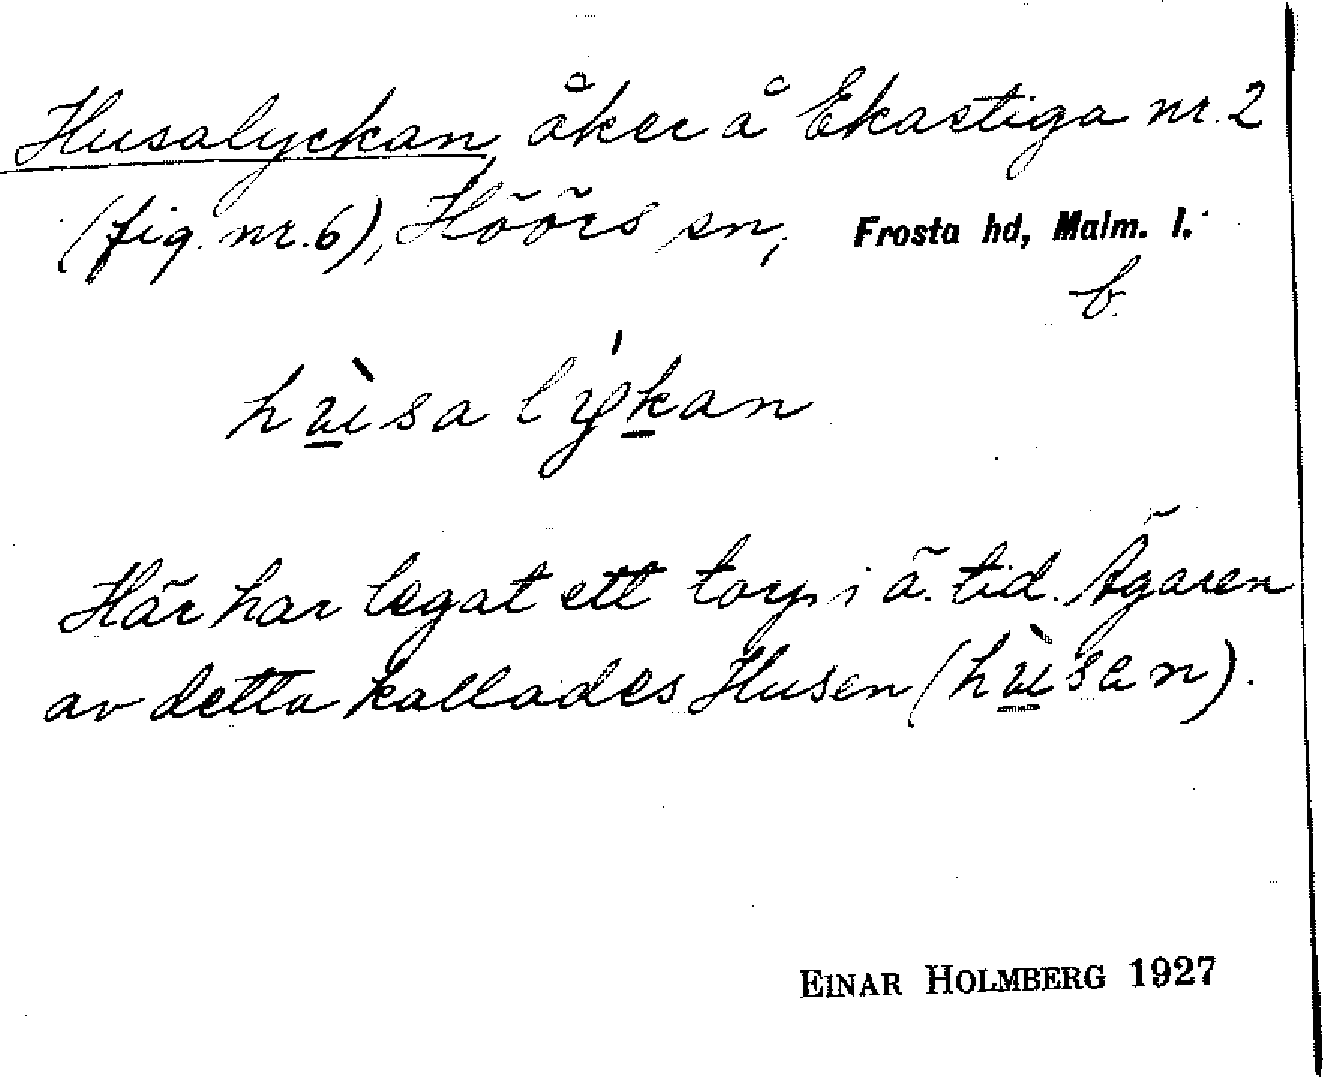 Husalyckan, åker å Ekastiga nr. 2
(fig. nr. 6), Höörs sn, Frosta hd, Malm. l.
b.
hùsalýkan
Här har legat ett torp i ä. tid. Ägaren
av detta kallades Husen (hùsen).
EINAR HOLMBERG 1927